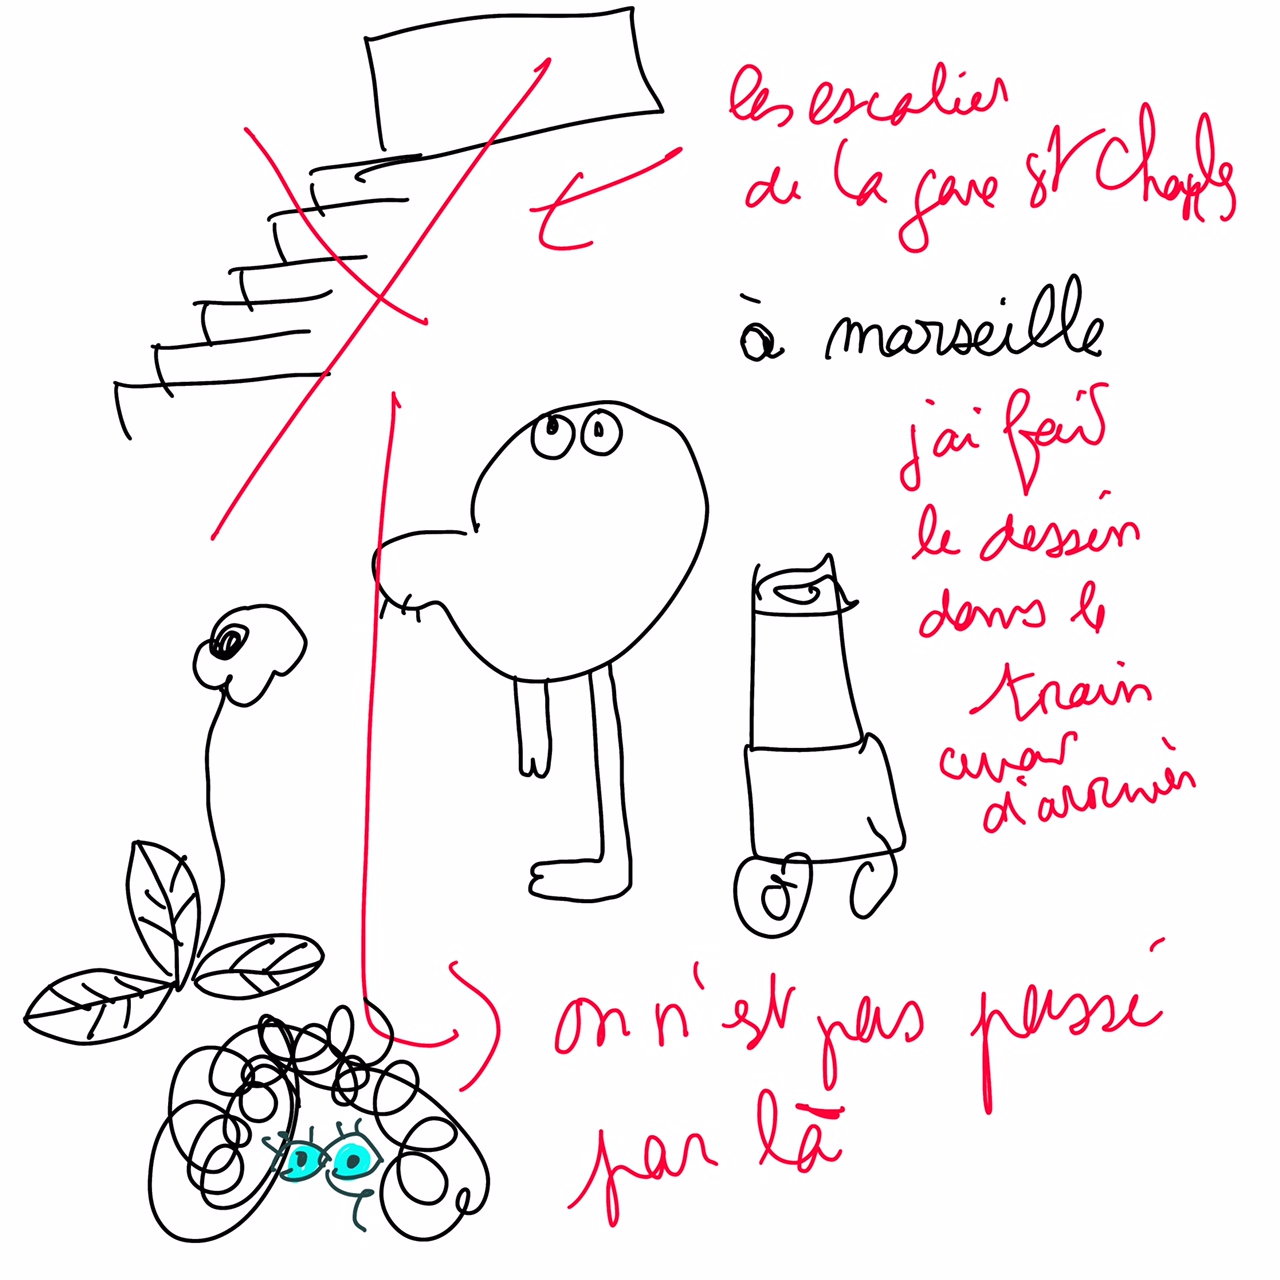 les escalier
de la gare St Charles
à marseille
j'ai fait
le dessin
dans le
train
avar
d'arriver
on n'est pas passé
par là